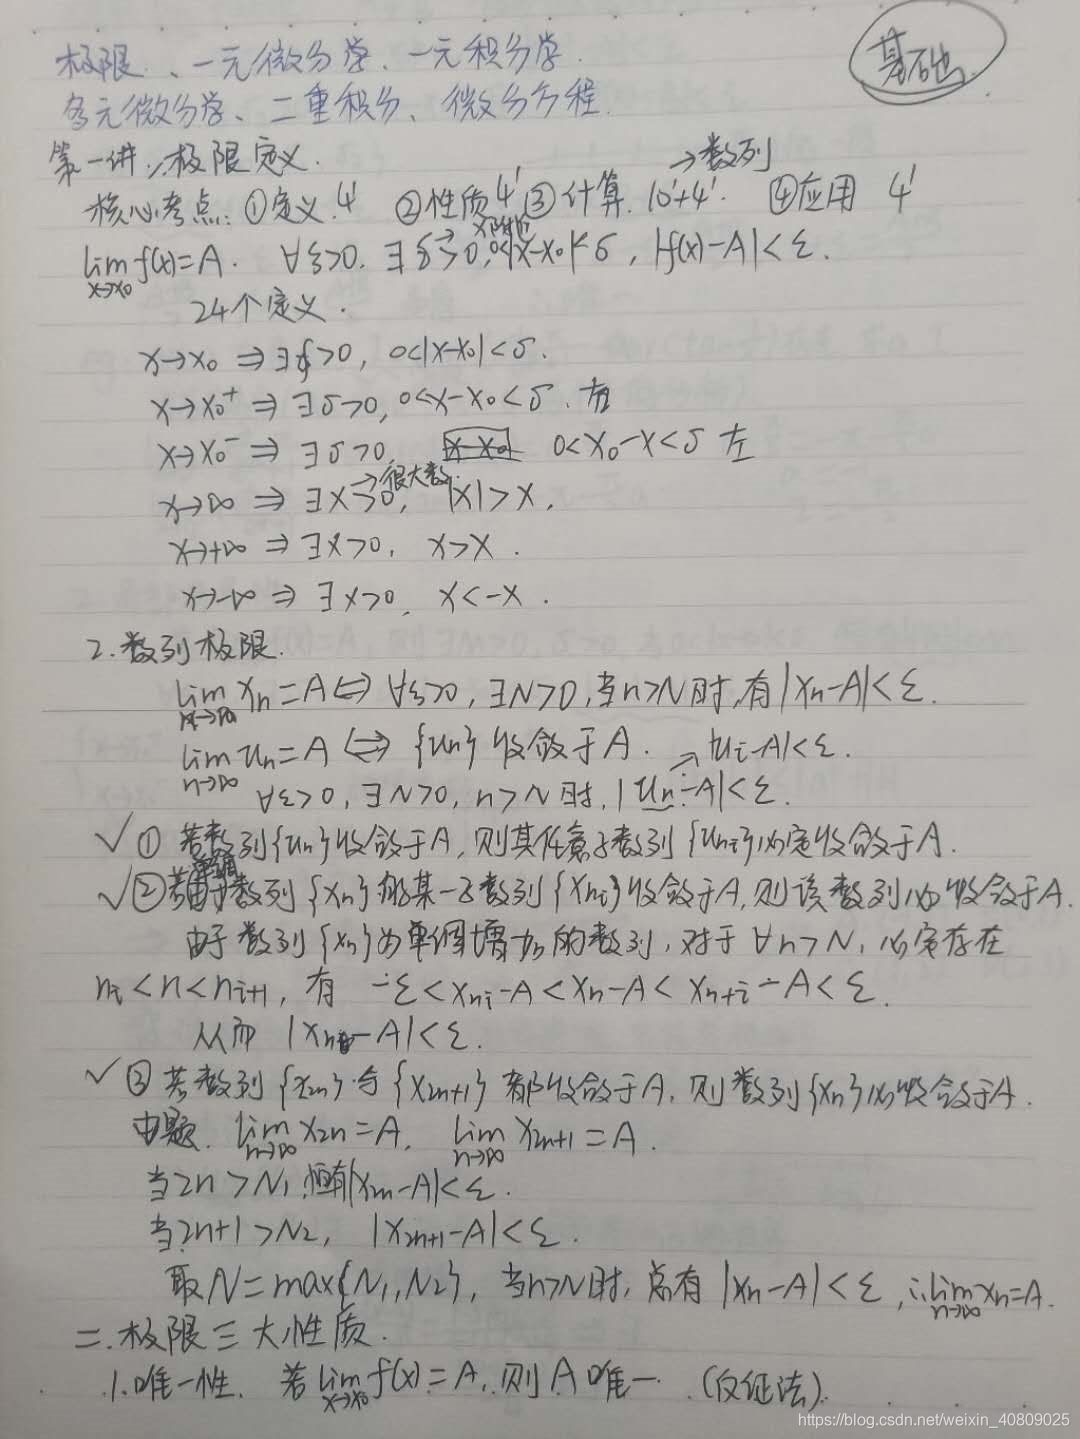 极限、一元微分学、一元积分学.
基础
多元微分学、二重积分、微分方程.
第一讲:极限定义.
→数列
核心考点:①定义.4' ②性质4' ③计算.10'+4'. ④应用 4'
x附近
lim f(x)=A. ∀ε>0, ∃δ>0, 0<|x-x₀|<δ, |f(x)-A|<ε.
x→x₀
24个定义.
x→x₀ ⇒ ∃δ>0, 0<|x-x₀|<δ.
x→x₀⁺ ⇒ ∃δ>0, 0<x-x₀<δ. 右
x→x₀⁻ ⇒ ∃δ>0, 0<x₀-x<δ 左
→很大数.
x→∞ ⇒ ∃X>0, |x|>X.
x→+∞ ⇒ ∃X>0, x>X.
x→-∞ ⇒ ∃X>0, x<-X.
2.数列极限.
lim xₙ=A ⇔ ∀ε>0, ∃N>0, 当n>N时,有|xₙ-A|<ε.
n→∞
lim uₙ=A ⇔ {uₙ}收敛于A. → |uᵢ-A|<ε.
n→∞
∀ε>0, ∃N>0, n>N时, |uₙ-A|<ε.
✓ ① 若数列{uₙ}收敛于A,则其任意子数列{uₙᵢ}必定收敛于A.
✓ ② 若单调数列{xₙ}的某一子数列{xₙᵢ}收敛于A,则该数列必收敛于A.
由于数列{xₙ}为单调增加的数列,对于∀n>N,必定存在
nᵢ<n<nᵢ₊₁, 有 -ε<xₙᵢ-A<xₙ-A<xₙ₊ᵢ-A<ε.
从而 |xₙ-A|<ε.
✓ ③ 若数列{x₂ₙ}与{x₂ₙ₊₁}都收敛于A,则数列{xₙ}必收敛于A.
由题. lim x₂ₙ=A, lim x₂ₙ₊₁=A.
n→∞ n→∞
当2n>N₁,恒有|x₂ₙ-A|<ε.
当2n+1>N₂, |x₂ₙ₊₁-A|<ε.
取N=max{N₁,N₂}, 当n>N时,总有|xₙ-A|<ε, ∴lim xₙ=A.
n→∞
二.极限三大性质.
1.唯一性. 若lim f(x)=A,则A唯一. (反证法).
x→x₀
https://blog.csdn.net/weixin_40809025